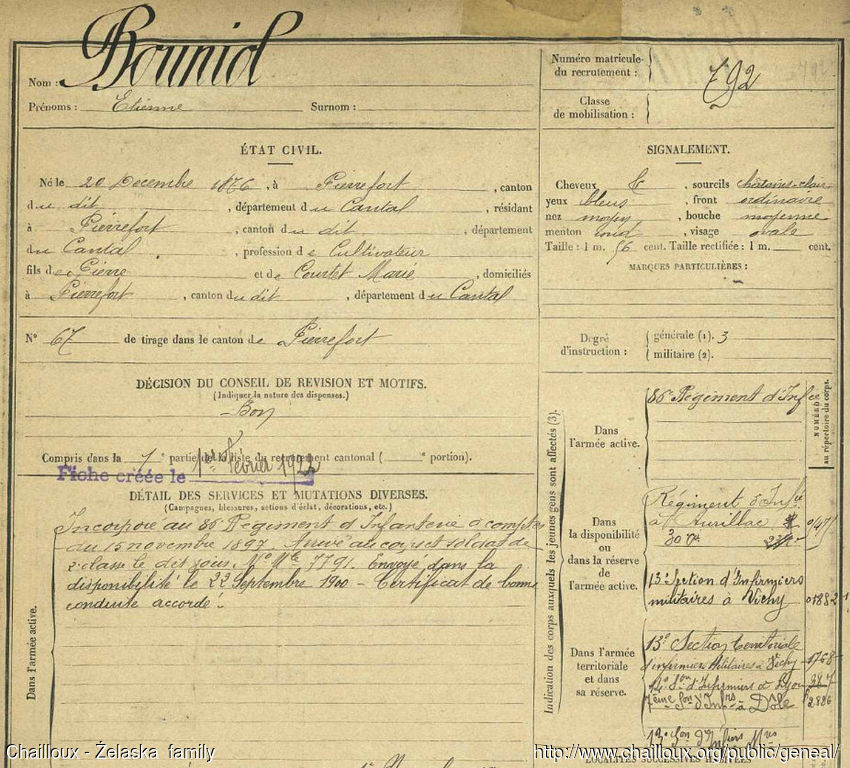 Nom : Bouniol
Prénoms : Etienne Surnom :
ÉTAT CIVIL.
Né le 20 Decembre 1876, à Pierrefort, canton
du dit, département du Cantal, résidant
à Pierrefort, canton du dit, département
du Cantal, profession de Cultivateur
fils de Pierre et de Courtet Marie, domiciliés
à Pierrefort, canton du dit, département du Cantal
N° 67 de tirage dans le canton de Pierrefort
DÉCISION DU CONSEIL DE REVISION ET MOTIFS.
(Indiquer la nature des dispenses.)
Bon
Compris dans la 1e partie de la liste du recrutement cantonal ( e portion).
Fiche créée le 1er février 1922
DÉTAIL DES SERVICES ET MUTATIONS DIVERSES.
(Campagnes, blessures, actions d'éclat, décorations, etc.)
Incorporé au 86e Régiment d'Infanterie à compter
du 15 novembre 1897. Arrivé au corps et soldat de
2e classe le dit jour. No Mle 7791. Envoyé dans la
disponibilité le 22 Septembre 1900 - Certificat de bonne
conduite accordé.
Dans l'armée active.
Numéro matricule
du recrutement : 792
Classe
de mobilisation :
SIGNALEMENT.
Cheveux, sourcils châtains-clair
yeux bleus, front ordinaire
nez moyen, bouche moyenne
menton rond, visage ovale
Taille : 1 m. 56 cent. Taille rectifiée : 1 m. cent.
MARQUES PARTICULIÈRES :
Degré
d'instruction :
générale (1). 3
militaire (2).
Indication des corps auxquels les jeunes gens sont affectés (3).
NUMÉROS
au répertoire du corps.
Dans
l'armée active.
86e Régiment d'Infie
Dans
la disponibilité
ou
dans la réserve
de
l'armée active.
Régiment d'Infie
d'Aurillac
13e Section d'Infirmiers
militaires à Vichy 01882
Dans l'armée
territoriale
et dans
sa réserve.
13e Section territoriale
d'infirmiers Militaires à Vichy 1768
d'Infirmiers de Lyon
7ème Son d'Infrs à Dôle 2886
13e Son d'Infirs Mres
LOCALITÉS SUCCESSIVES HABITÉES
Chailloux - Żelaska family
http://www.chailloux.org/public/geneal/